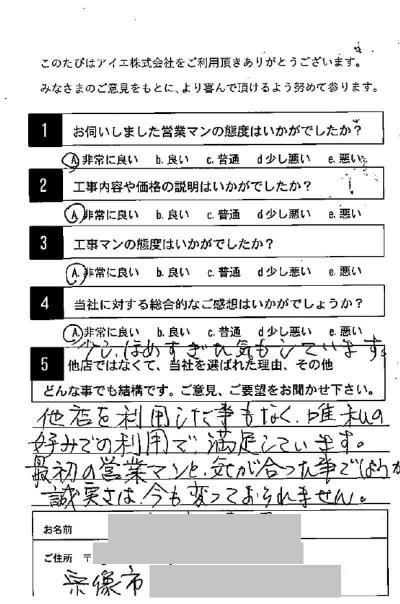 このたびはアイエ株式会社をご利用頂きありがとうございます。
みなさまのご意見をもとに、より喜んで頂けるよう努めて参ります。
1 お伺いしました営業マンの態度はいかがでしたか？
A.非常に良い b.良い c.普通 d少し悪い e.悪い
2 工事内容や価格の説明はいかがですか？
A.非常に良い b.良い c.普通 d少し悪い e.悪い
3 工事マンの態度はいかがでしたか？
A.非常に良い b.良い c.普通 d少し悪い e.悪い
4 当社に対する総合的なご感想はいかがでしょうか？
A.非常に良い b.良い c.普通 d少し悪い e.悪い
少し、ほめすぎた気もしています。
5 他店ではなくて、当社を選ばれた理由、その他
どんな事でも結構です。ご意見、ご要望をお聞かせ下さい。
他店を利用した事もなく、唯私の
好みでの利用で、満足しています。
最初の営業マンと、気が合った事で
誠実さは、今も変っておられません。
お名前
ご住所 〒
宗像市